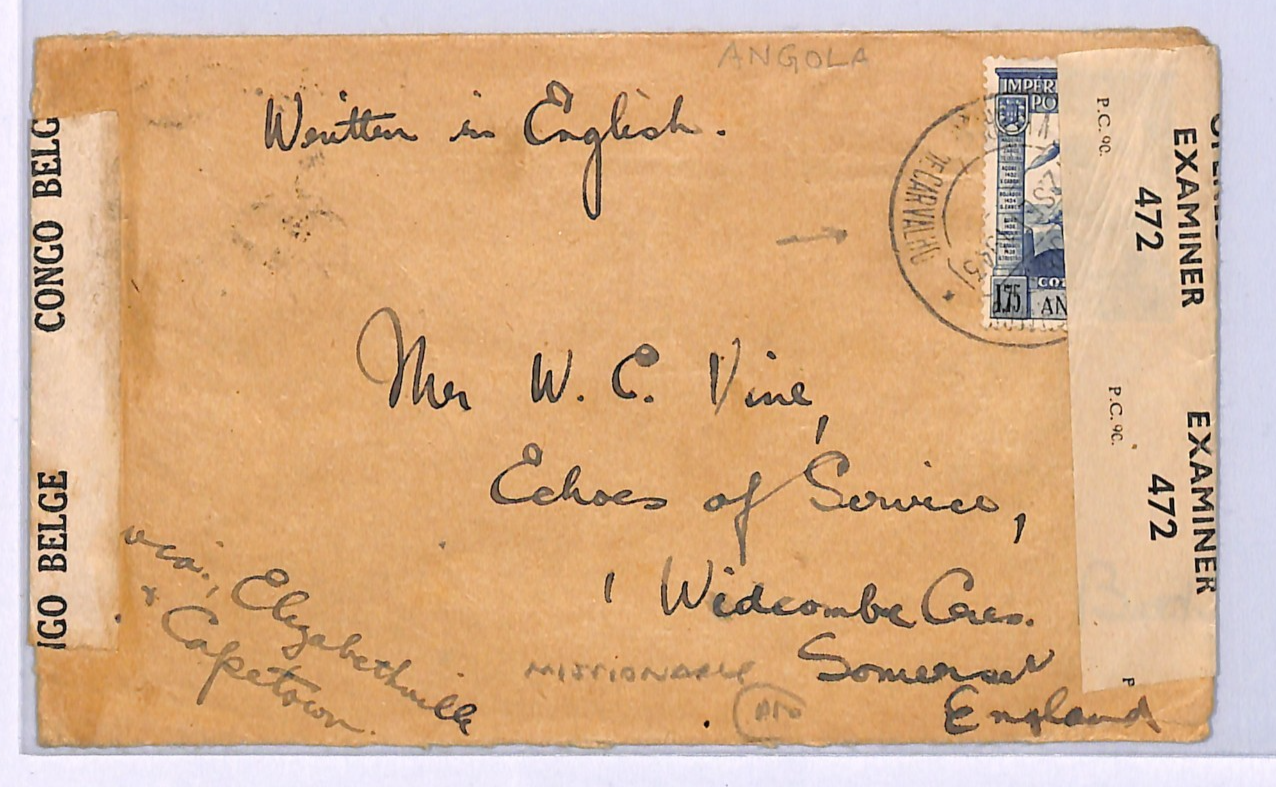 ANGOLA
Written in English.
IMPER
PO
DE CARVALHO
1.75 AN
P.C. 90.
EXAMINER
472
P.C. 90.
EXAMINER
472
P
CONGO BELG
GO BELGE
Mr W. E. Vine,
Echoes of Service,
1 Widcombe Cres.
Somerset
England
via, Elizabethville
& Capetown.
MISSIONARY